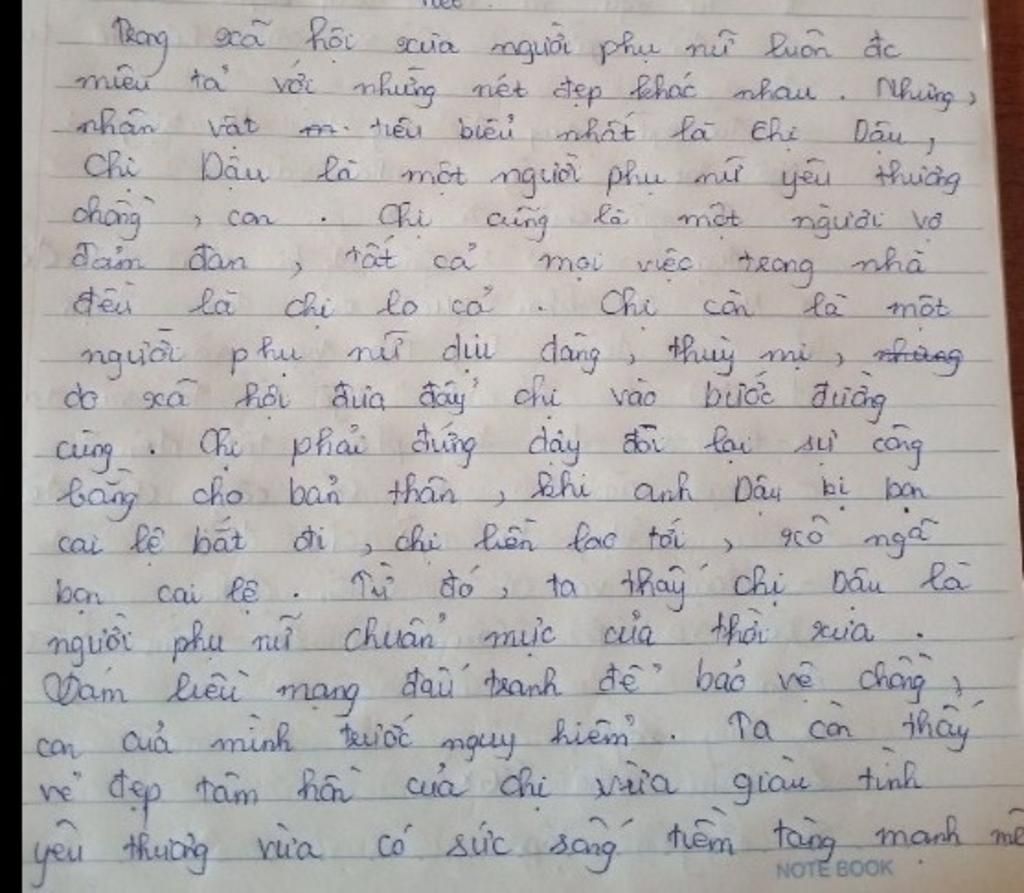 Trong xã hội xưa người phụ nữ luôn đc
miêu tả với những nét đẹp khác nhau. Nhưng,
nhân vật tiêu biểu nhất là Chị Dậu,
Chị Dậu là một người phụ nữ yêu thương
chồng, con. Chị cũng là một người vợ
đảm đan, tất cả mọi việc trong nhà
đều là chị lo cả. Chị còn là một
người phụ nữ dịu dàng, thuỳ mị, nhưng
do xã hội đưa đẩy chị vào bước đường
cùng. Chị phải đứng dậy đòi lại sự công
bằng cho bản thân, khi anh Dậu bị bọn
cai lệ bắt đi, chị liền lao tới, xô ngã
bọn cai lệ. Từ đó, ta thấy chị Dậu là
người phụ nữ chuẩn mực của thời xưa.
Dám liều mạng đấu tranh để bảo vệ chồng,
con của mình trước nguy hiểm. Ta còn thấy
vẻ đẹp tâm hồn của chị vừa giàu tình
yêu thương vừa có sức sống tiềm tàng mạnh mẽ
NOTE BOOK